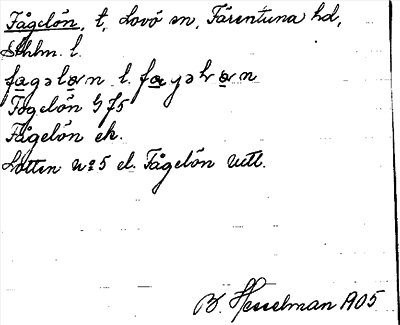 Fågelön, t, Lovö sn, Färentuna hd,
Sthlm. l.
Fågelön G 75
Fågelön ek.
Lotten No 5 el. Fågelön Utl.
B. Hesselman 1905